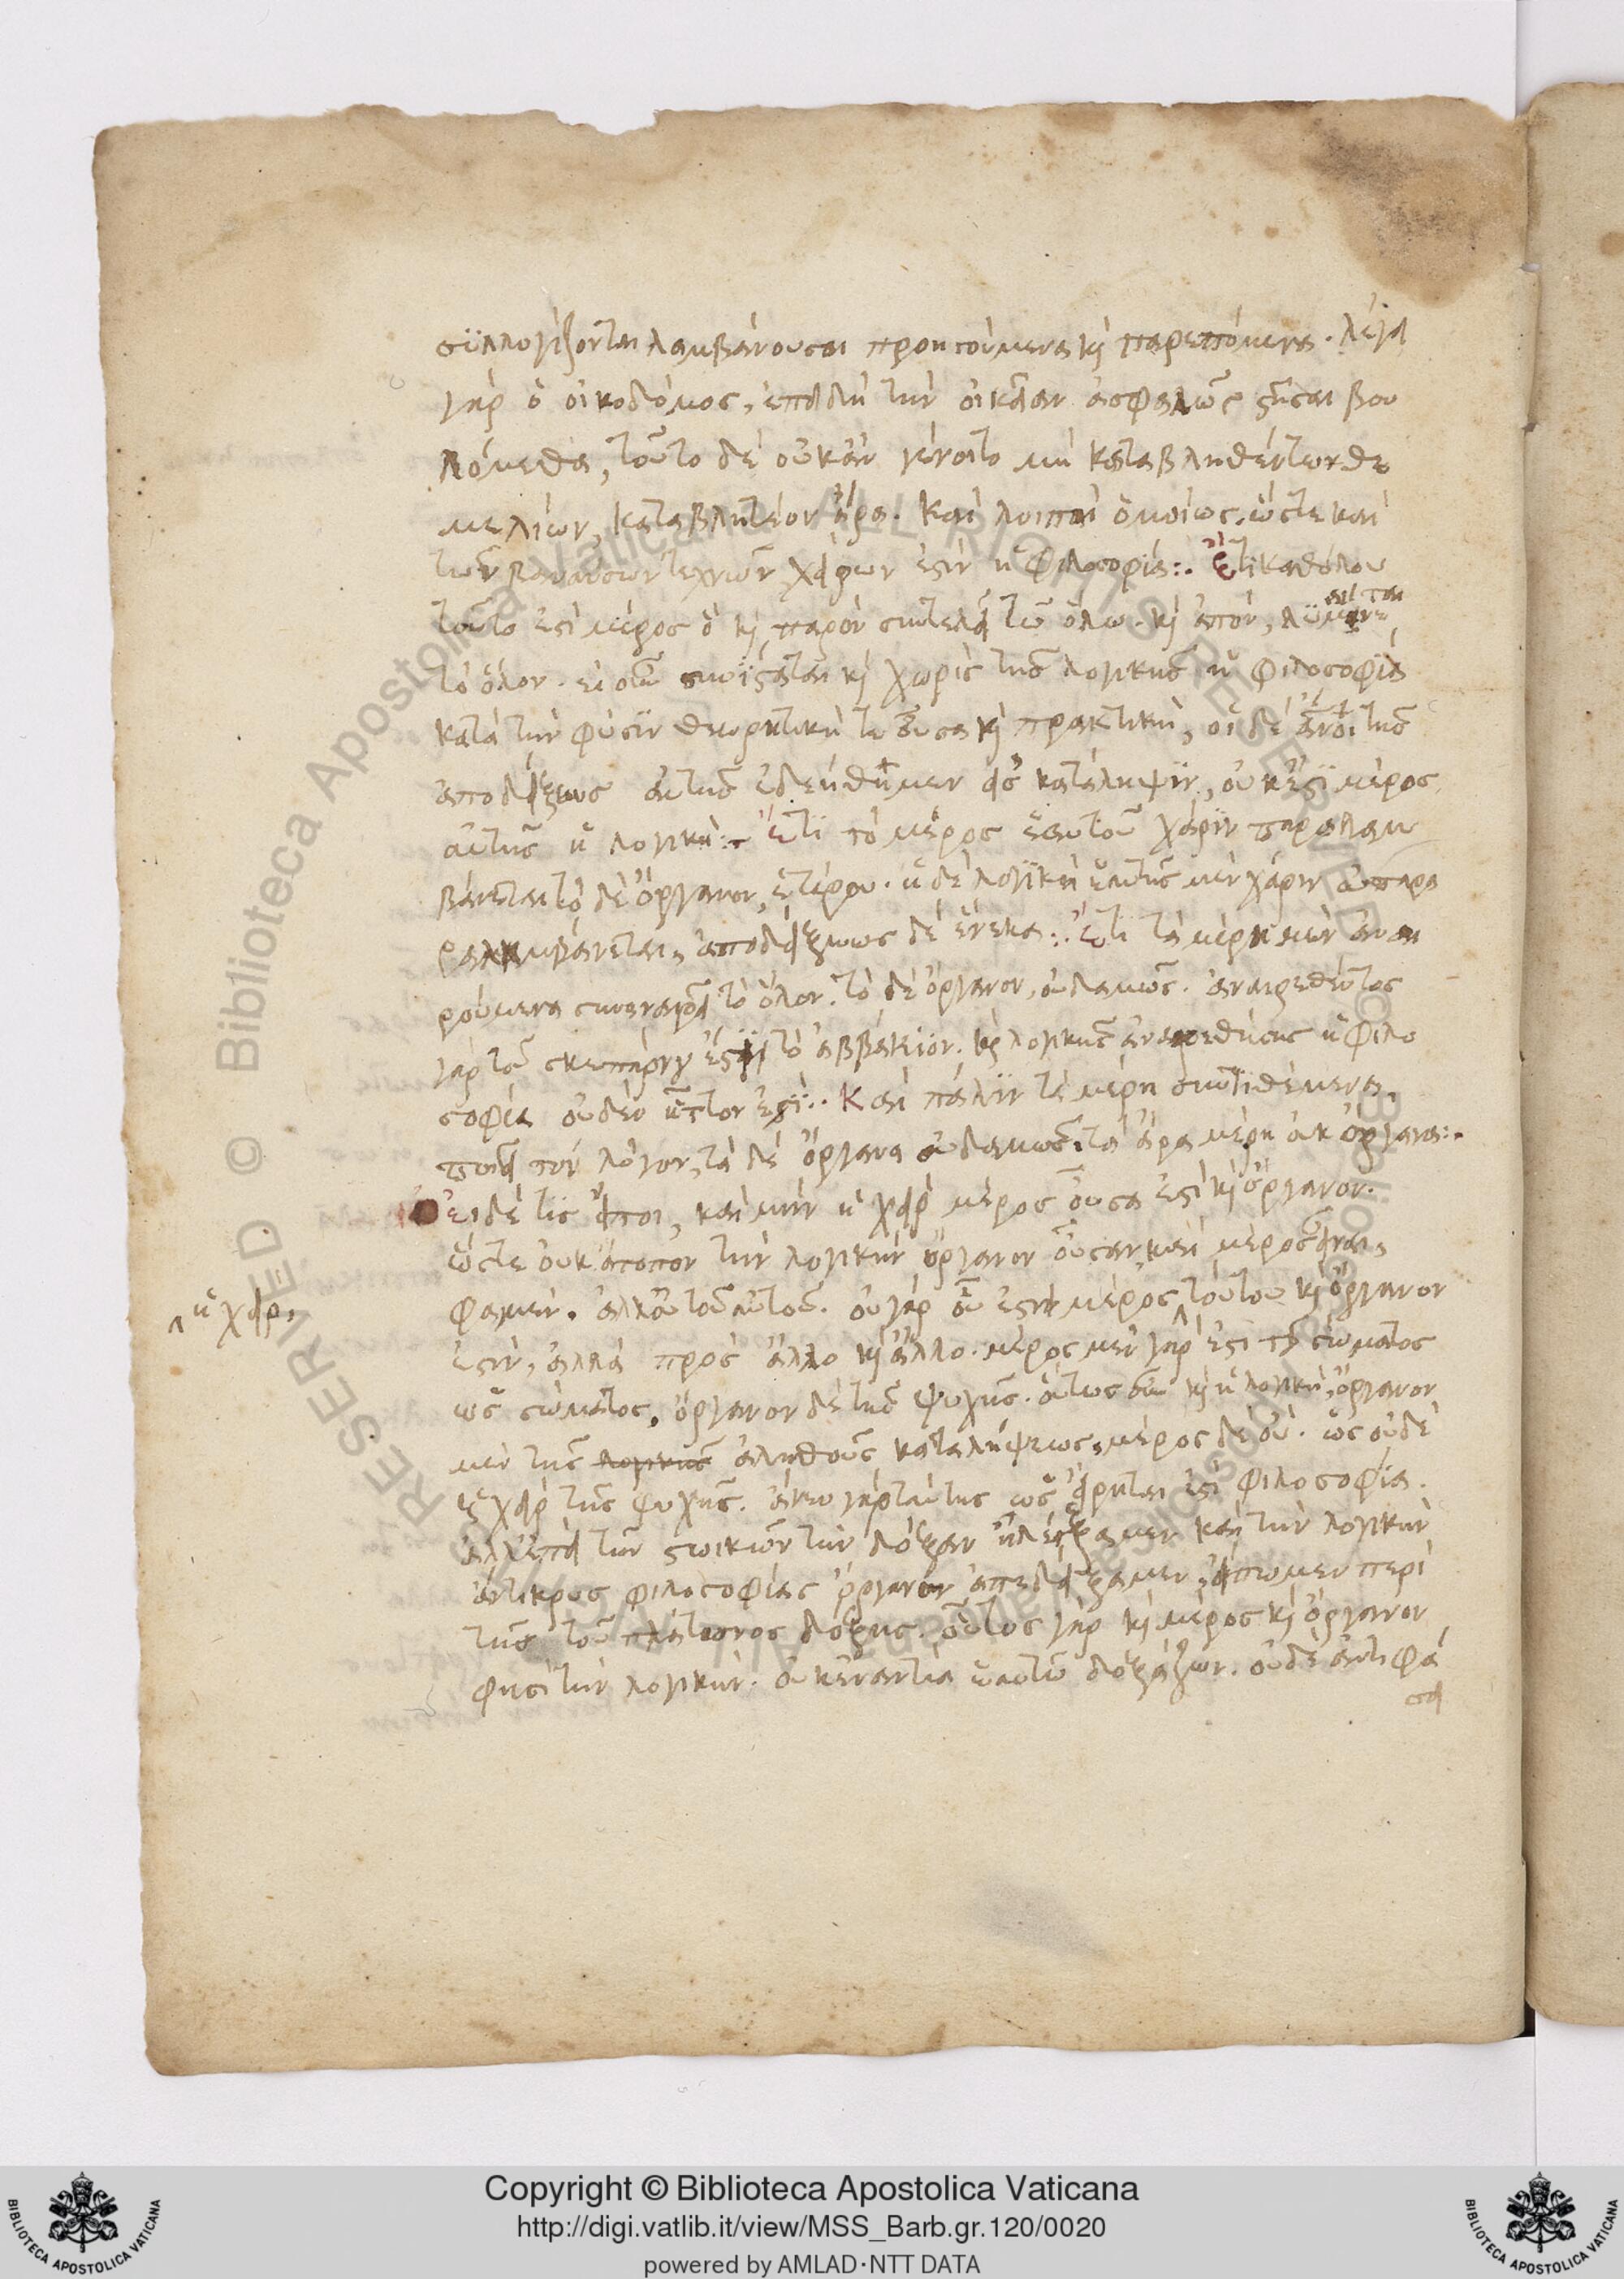 συλλογίζονται λαμβάνουσαι προηγούμενα κὶ παρεπόμενα. λέγει
γὰρ ὁ οἰκοδόμος, ἐπειδὴ τὴν οἰκείαν ἀσφαλῶς στῆσαι βου
λόμεθα, τοῦτο δὲ οὐκ ἂν γένοιτο μὴ καταβληθέντων θε
μελίων, καταβλητέον ἄρα. καὶ λοιπαὶ ὁμοίως. ὥστε καὶ
τῶν βαναύσων τεχνῶν χείρων ἐστὶν ἡ φιλοσοφία:. Ἔτι καθόλου
τοῦτο ἐστὶ μέρος ὃ κὶ παρὸν συντελεῖ τῶ ὅλω. κὶ ἀπὸν, λυμαίνεται
τὸ ὅλον. εἰ οὖν συνίσταται κὶ χωρὶς τῆς λογικῆς ἡ φιλοσοφία
κατὰ τὴν φύσιν θεωρητική τε οὖσα κὶ πρακτικὴ, οἱ δὲ ἄνοι τῆς
ἀποδείξεως αὐτῆς ἐδεήθημεν εἰς κατάληψιν, οὐκ ἔστι μέρος
αὐτῆς ἡ λογική:. Ἔτι τὸ μέρος ἑαυτοῦ χάριν παραλαμ
βάνεται τὸ δὲ ὄργανον, ἑτέρου. ἡ δὲ λογικὴ ἑαυτῆς μὲν χάριν οὐ παρα
λαμβάνεται, ἀποδείξεως δὲ ἕνεκα:. Ἔτι τὰ μέρη μὲν ἀναι
ρούμενα συναναιρεῖ τὸ ὅλον. τὸ δὲ ὄργανον, οὐδαμῶς. ἀναιρεθέντος
γὰρ τοῦ σκεπάρνου ἔστι τὸ ἀββάκιον. κὶ λογικῆς ἀναιρεθείσης ἡ φιλο
σοφία οὐδὲν ἧττον ἐστί:. Καὶ πάλιν τὰ μέρη συντιθέμενα,
ποιεῖ τὸν λόγον, τὰ δὲ ὄργανα οὐδαμῶς. τὰ ἄρα μέρη οὐκ ὄργανα:.
εἰ δέ τις εἴποι, καὶ μὴν ἡ χεὶρ μέρος οὖσα ἐστὶ κὶ ὄργανον.
ὥστε οὐκ ἄτοπον τὴν λογικὴν ὄργανον οὖσαν, καὶ μέρος εἶναι,
φαμέν. ἀλλ' οὐ τοῦ αὐτοῦ. οὐ γὰρ οὗ ἐστι μέρος τούτου κὶ ὄργανον
ἡ χεὶρ,
ἐστὶν, ἀλλὰ πρὸς ἄλλο κὶ ἄλλο. μέρος μὲν γάρ ἐστι τοῦ σώματος
ὡς σώματος, ὄργανον δὲ τῆς ψυχῆς. οὕτως οὖν κὶ ἡ λογικὴ, ὄργανον
μὲν τῆς λογικῆς ἀληθοῦς καταλήψεως, μέρος δὲ οὔ. ὡς οὐδὲ
ἡ χεὶρ τῆς ψυχῆς. ἄνευ γὰρ ταύτης ὡς εἴρηται ἐστὶ φιλοσοφία.
ἀλλ' ἐπεὶ τῶν στωικῶν τὴν δόξαν ἠλέγξαμεν καὶ τὴν λογικὴν
ἄντικρυς φιλοσοφίας ὄργανον ἀπεδείξαμεν, εἴπωμεν περὶ
τῆς τοῦ πλάτωνος δόξης. οὗτος γὰρ κὶ μέρος κὶ ὄργανον
φησὶ τὴν λογικήν. οὐκ ἐναντία ἑαυτῶ δοξάζων. οὐδὲ ἀντιφά
σει
RESERVED © Biblioteca Apostolica Vaticana ALL RIGHTS RESERVED
Copyright © Biblioteca Apostolica Vaticana
http://digi.vatlib.it/view/MSS_Barb.gr.120/0020
powered by AMLAD·NTT DATA
BIBLIOTECA APOSTOLICA VATICANA
BIBLIOTECA APOSTOLICA VATICANA